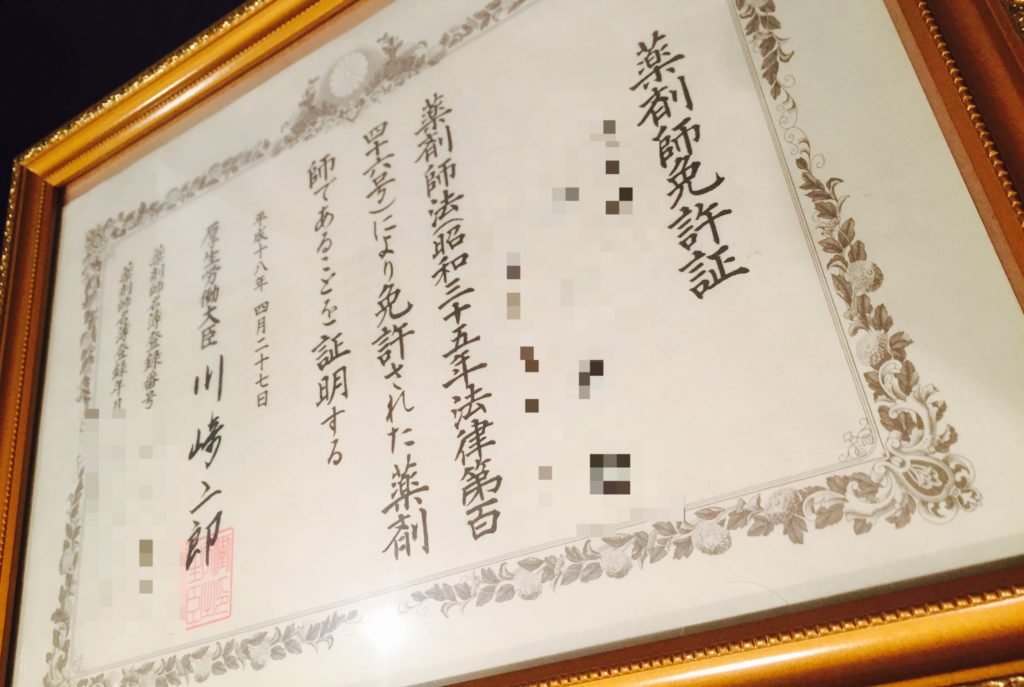 薬剤師免許証
薬剤師法(昭和三十五年法律第百
四十六号)により免許された薬剤
師であることを証明する
平成十八年 四月二十七日
厚生労働大臣 川崎二郎
薬剤師名簿登録番号
薬剤師名簿登録年月